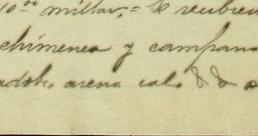 10.00 millar, = Se recubrie
chimenea y campana
adobe, arena cal, & &